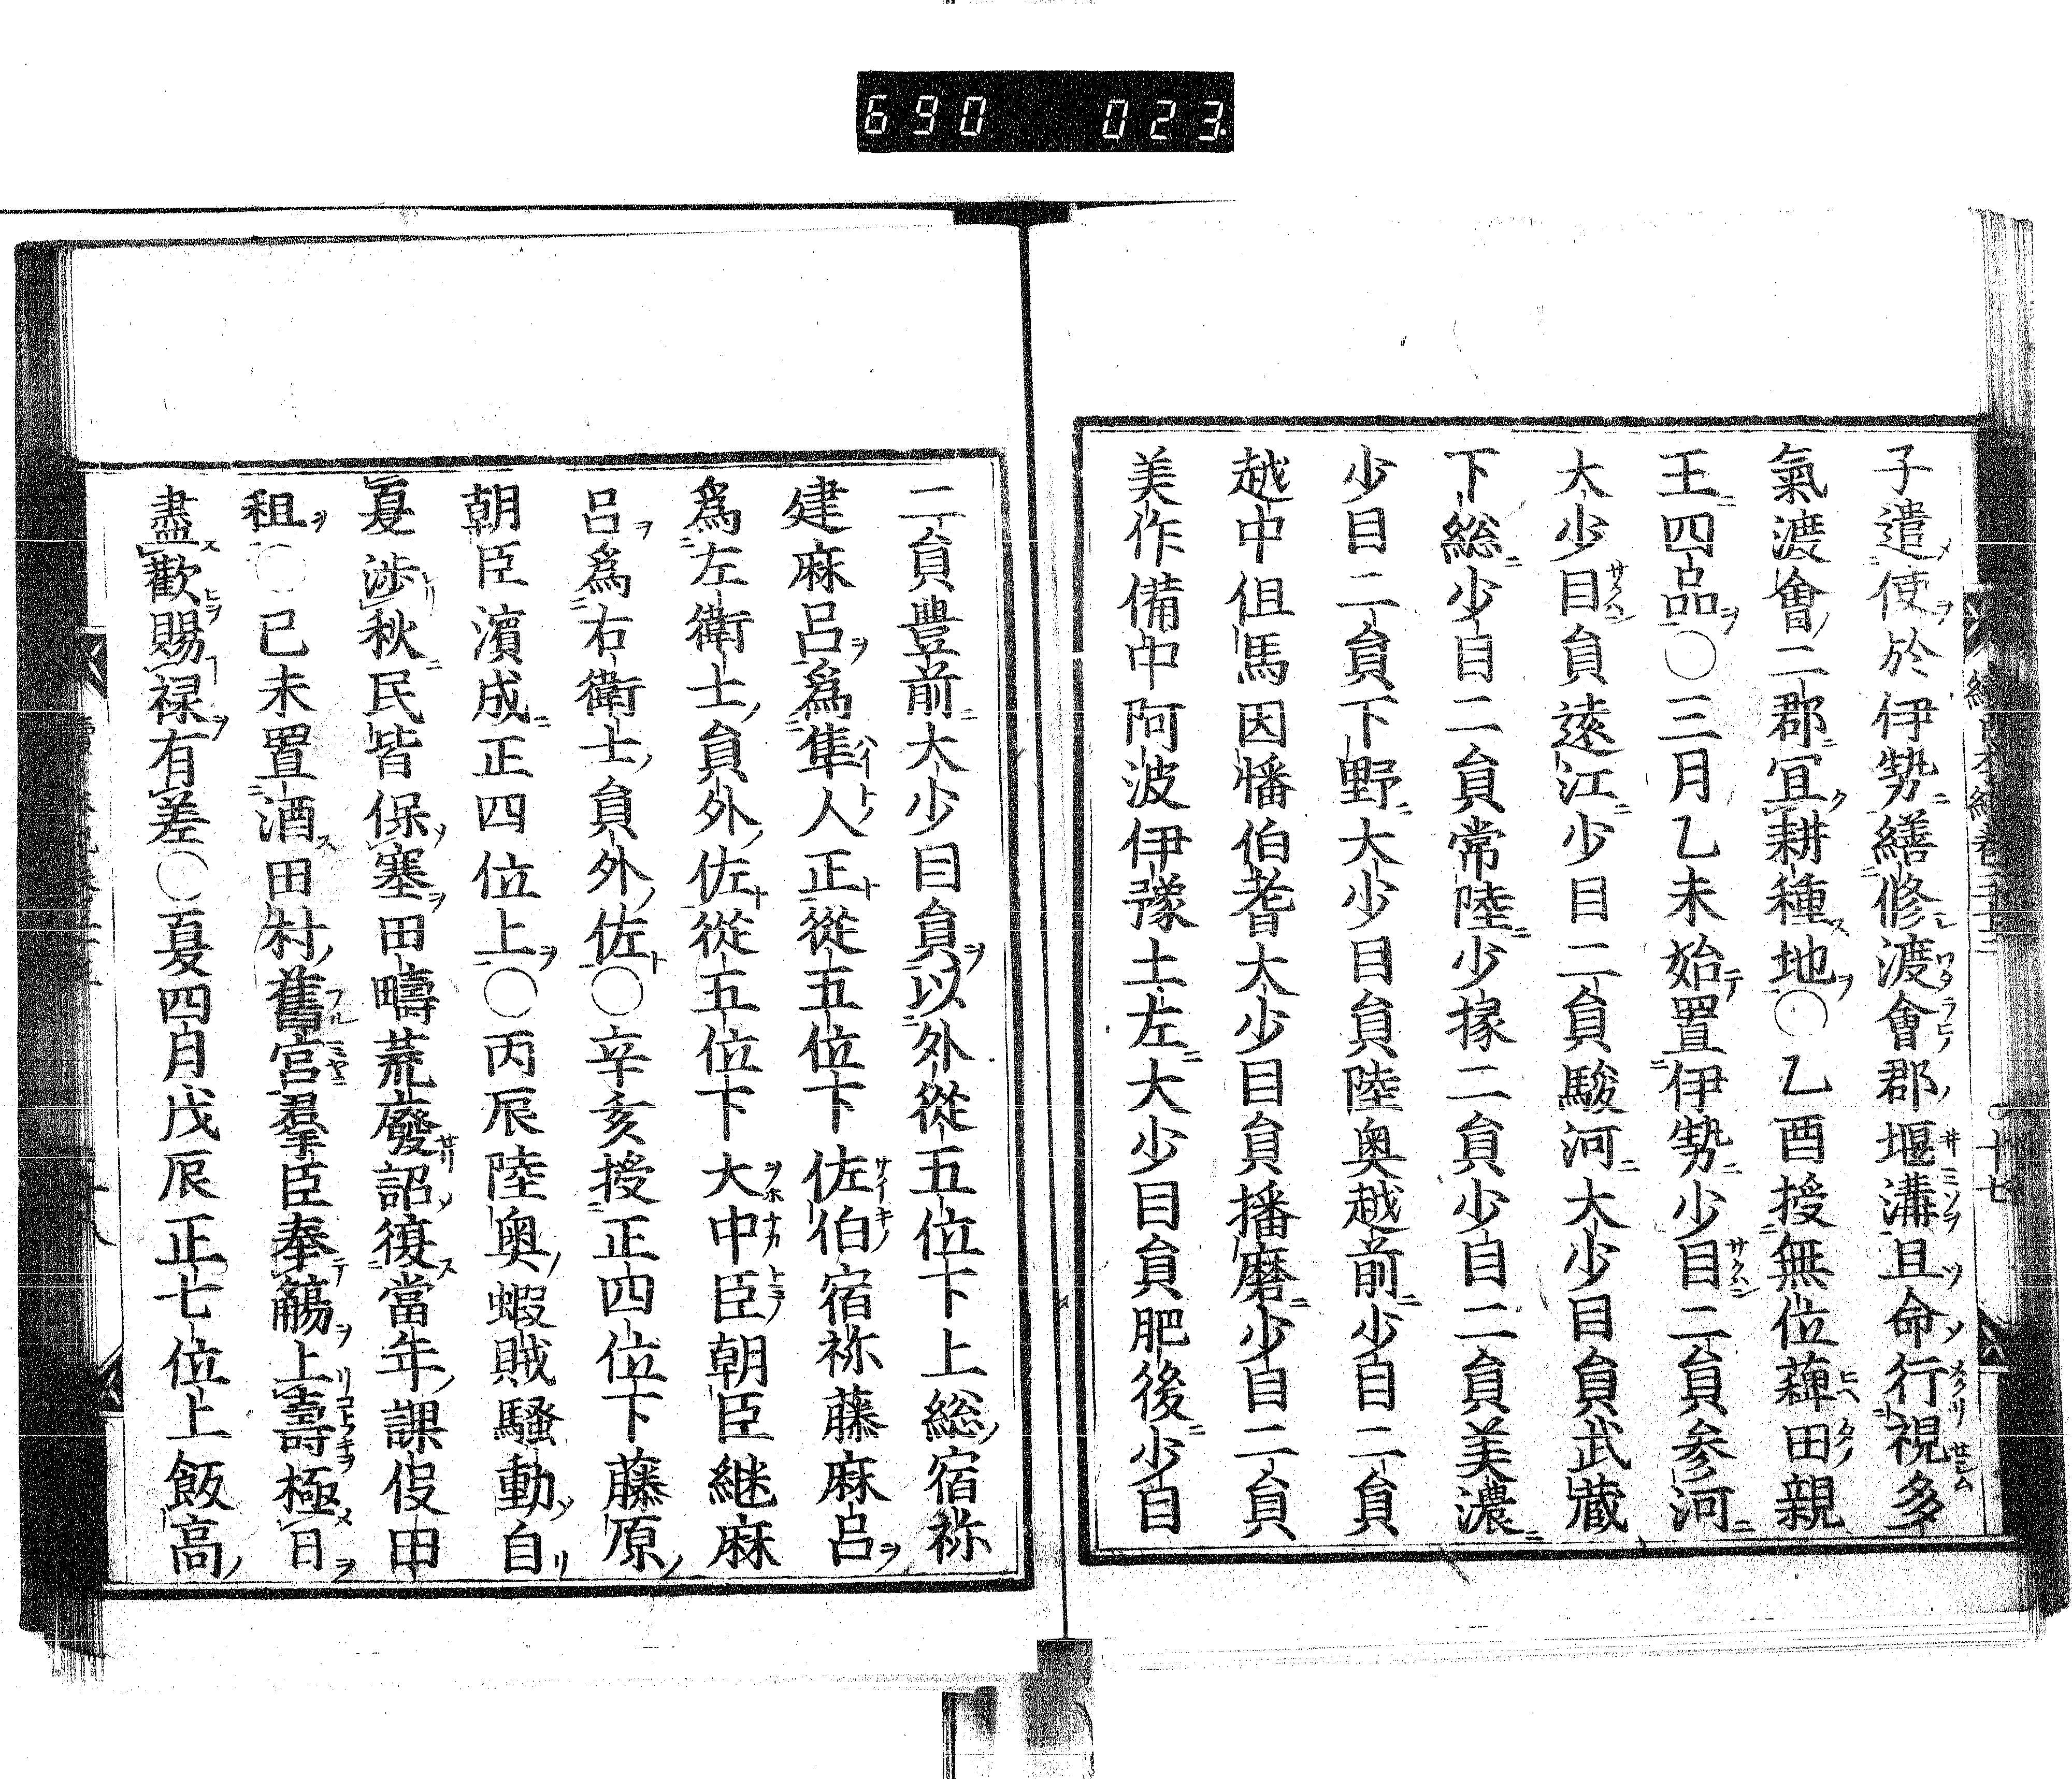 690 023
子遣使於伊勢繕修渡會郡堰溝且命行視多
氣渡會二郡冝耕種地〇乙酉授無位薭田親
王四品〇三月乙未始置伊勢少目二貟参河
大少目貟遠江少目二貟駿河大少目貟武蔵
下総少目二貟常陸少掾二貟少目二貟美濃
少目二貟下野大少目貟陸奥越前少目二貟
越中但馬因幡伯耆大少目貟播磨少目二貟
美作備中阿波伊豫土左大少目貟肥後少目
二貟豊前大少目貟以外從五位下上総宿祢
建麻呂爲隼人正從五位下佐伯宿祢藤麻呂
爲左衛士貟外佐從五位下大中臣朝臣継麻
呂爲右衛士貟外佐〇辛亥授正四位下藤原
朝臣濵成正四位上〇丙辰陸奥蝦賊騒動自
夏渉秋民皆保塞田疇荒廢詔復當年課役田
租〇己未置酒田村舊宮羣臣奉觴上壽極日
盡歡賜禄有差〇夏四月戊辰正七位上飯高